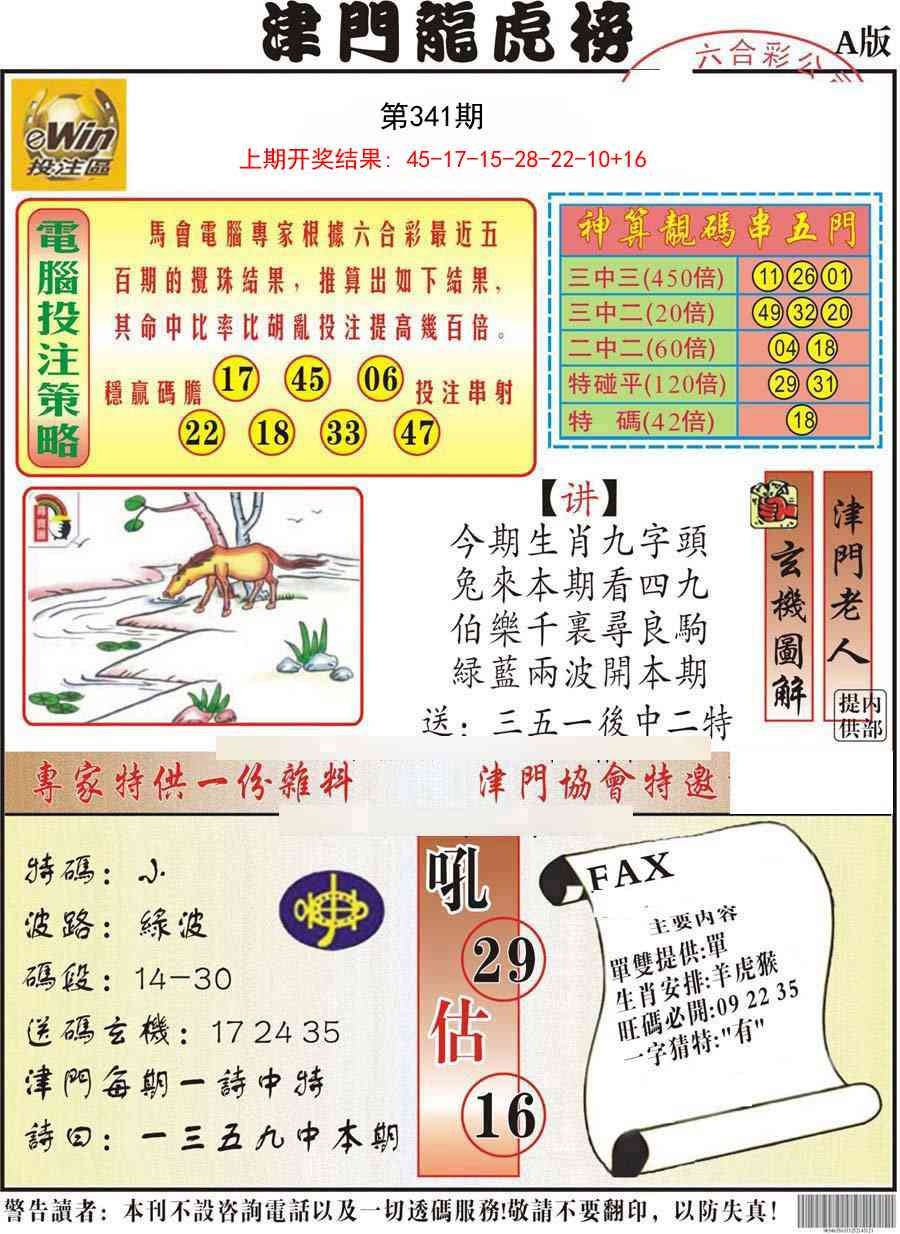 津門龍虎榜
六合彩公司
A版
eWin
投注區
第341期
上期开奖结果: 45-17-15-28-22-10+16
電腦投注策略
馬會電腦專家根據六合彩最近五
百期的攪珠結果，推算出如下結果，
其命中比率比胡亂投注提高幾百倍。
穩贏碼膽 17 45 06 投注串射
22 18 33 47
神算靚碼串五門
三中三(450倍) 11 26 01
三中二(20倍) 49 32 20
二中二(60倍) 04 18
特碰平(120倍) 29 31
特 碼(42倍) 18
【讲】
今期生肖九字頭
兔來本期看四九
伯樂千裏尋良駒
綠藍兩波開本期
送：三五一後中二特
玄機圖解
津門老人
内部提供
專家特供一份雜料
津門協會特邀
特碼：小
波路：綠波
碼段：14-30
送碼玄機：17 24 35
津門每期一詩中特
詩曰：一三五九中本期
吼
29
估
16
FAX
主要内容
單雙提供:單
生肖安排:羊虎猴
旺碼必開:09 22 35
一字猜特:"有"
警告讀者：本刊不設咨詢電話以及一切透碼服務!敬請不要翻印，以防失真!